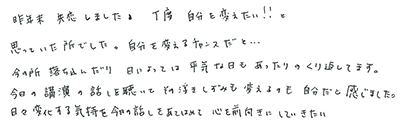 昨年末 失恋しました。 丁度 自分を変えたい!! と
思っていた所でした。自分を変えるチャンスだと…
今の所 落ち込んだり 日によっては 平気な日も あったりの くり返してます。
今日の 講演の 話しを 聴いて その浮きしずみも 変えるのも 自分だと 感じました。
日々 変化する気持を 今日の話しを あてはめて 心を前向きに していきたい